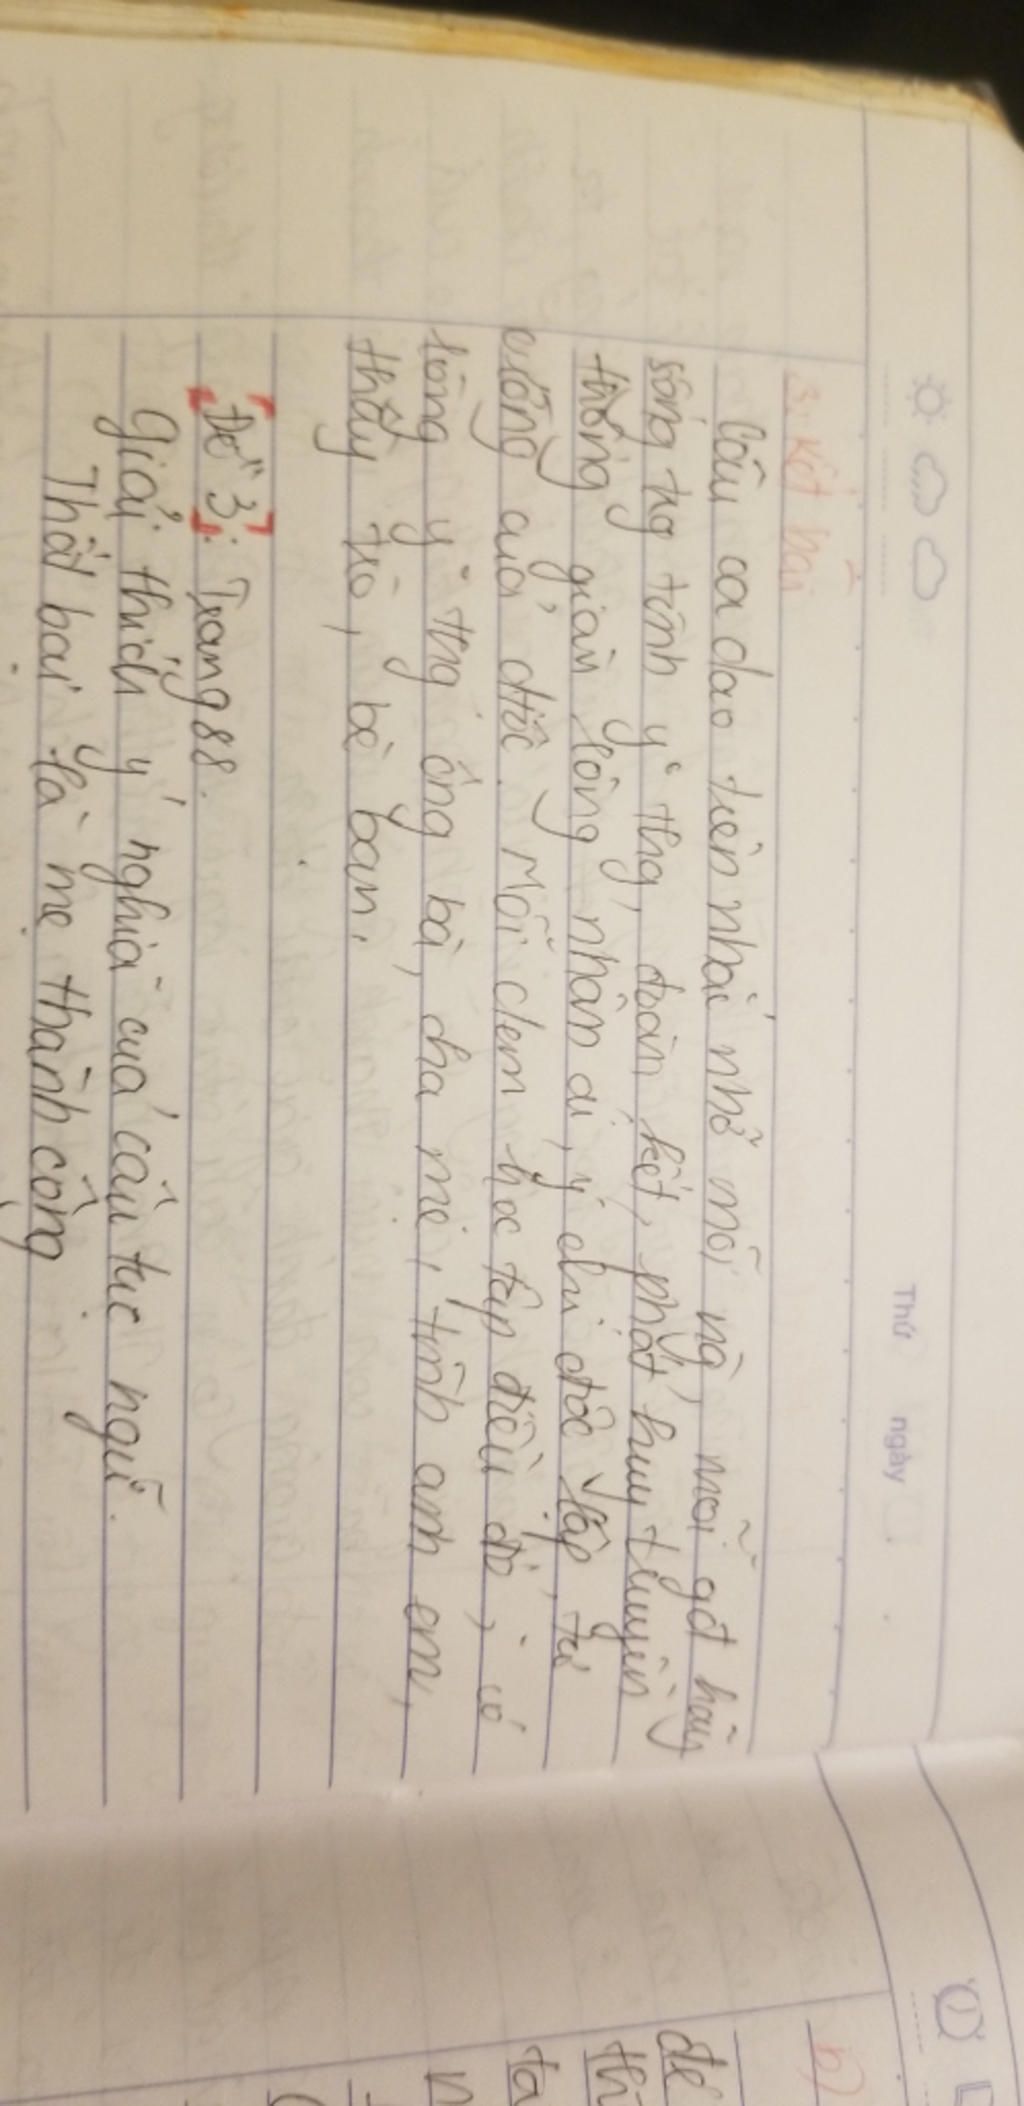 Thứ ngày
3: Kết bài
Câu ca dao trên nhắc nhở mỗi ng, mỗi gđ hãy
sống trg tình y thg, đoàn kết, phát huy truyền
thống giàu lòng nhân ái, ý chí độc lập, tự
cường của dtộc. Mỗi clem học tập điều đó, có
lòng y thg ông bà, cha mẹ, tình anh em,
thầy trò, bè bạn.
Đề 3: Trang 88.
Giải thích ý nghĩa của câu tục ngữ.
Thất bại là mẹ thành công
b)
để
th
ta
n